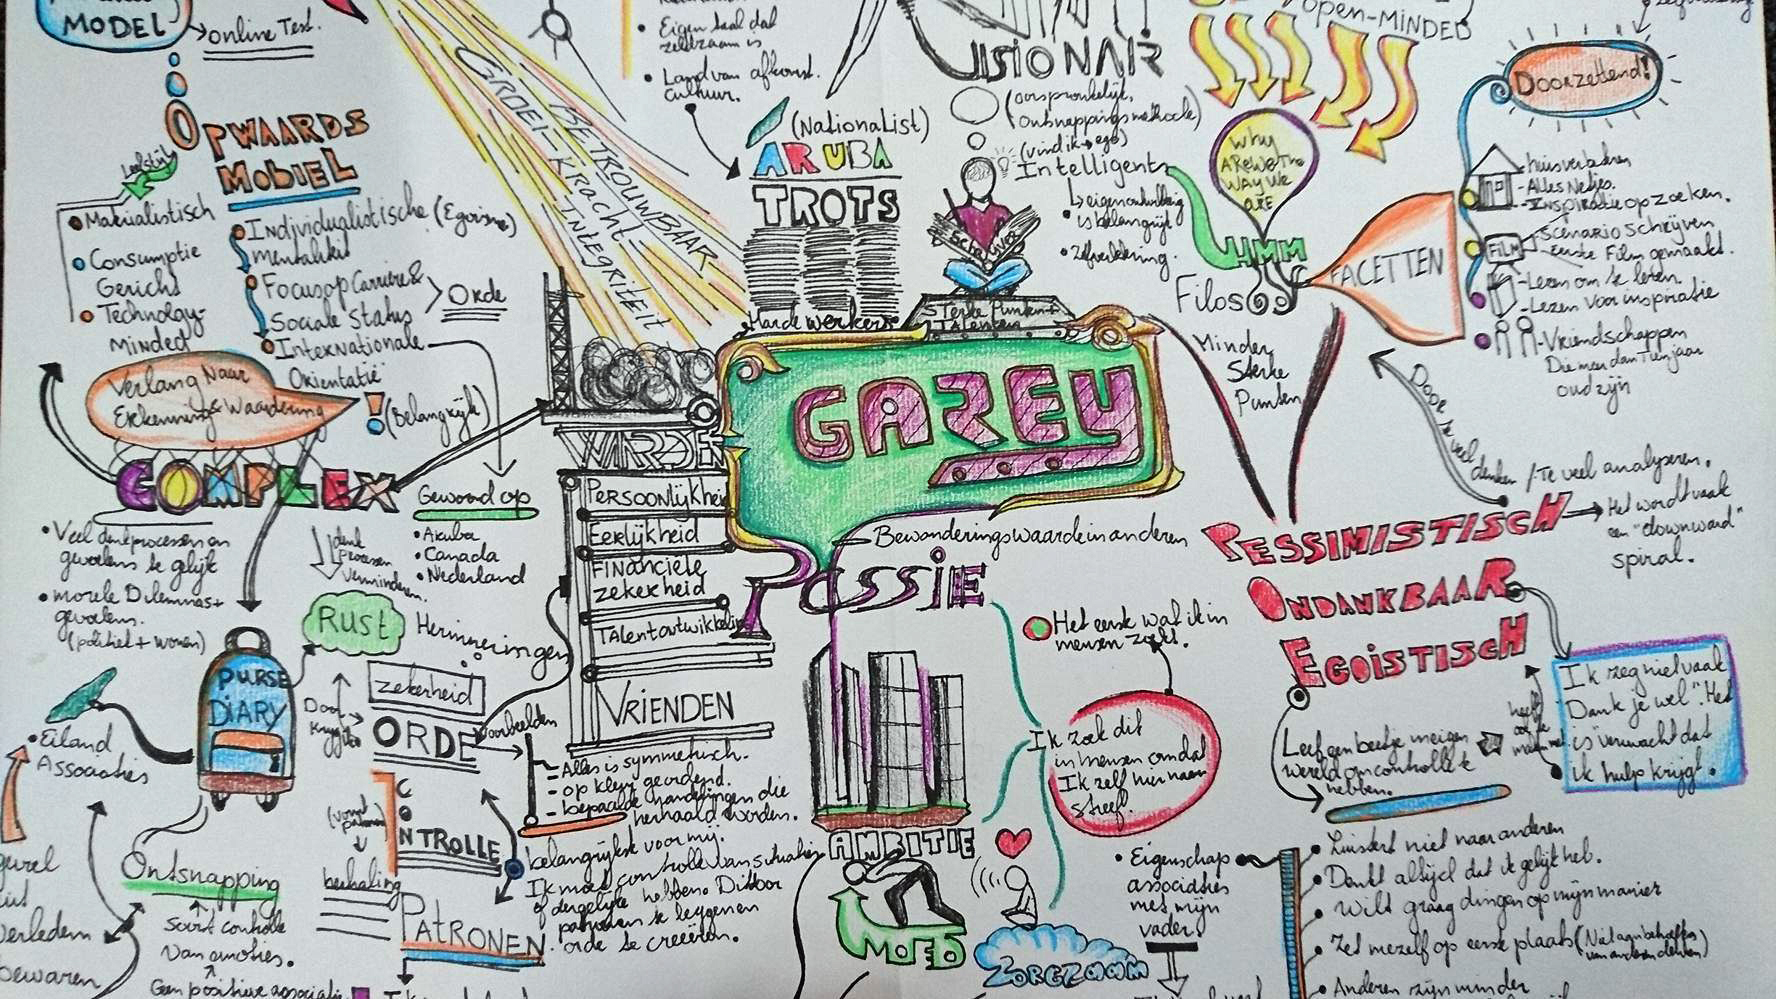 MODEL
online Test.
OPWAARDS
MOBIEL
Leefstijl
Materialistisch
Consumptie
Gericht
Technology-
Minded
Individualistische (Egoisme)
mentaliteit
Focus op Carriere &
Sociale Status
Orde
Internationale
Orientatie
Verlang Naar
Erkenning & Waardering
! (Belangrijk)
COMPLEX
Veel denkprocessen en
gevoelens te gelijk
morele Dilemna's +
gevoelens.
(politiek + wonen)
denk
Processen
Verminderen.
Gewoond op
Aruba
Canada
Nederland
Rust
Herinneringen
PURSE
DIARY
Eiland
Associaties
Ontsnapping
Soort controle
van emoties.
verleden
bewaren
zekerheid
ORDE
Voorbeelden
Alles is symmetrisch.
- op kleur geordend.
- bepaalde handelingen die
herhaald worden.
CONTROLLE
belangrijkste voor mij.
Ik moet controlle van situaties
of dergelijke hebben. Dit door
patronen te leggen en
orde te creëren.
herhaling
PATRONEN
GROEI-KRACHT-
INTEGRITEIT
BETROUWBAAR
WAARDEN
PERSOONLIJKHEID
Eerlijkheid
FINANCIËLE
zekerheid
TALENTONTWIKKELING
VRIENDEN
Eigen taal dat
zeldzaam is
Land van afkomst.
cultuur.
(NATIONALIST)
ARUBA
TROTS
Harde werkers
VISIONAIR
(oorspronkelijk,
ontsnappingsmethode)
(vind ik → ego)
Intelligent
Ls eigen ontwikkeling
is belangrijk
Zelfverklaring.
Sterke Punten +
Talenten
GAREY
OPEN-MINDED
Why
ARE WE THE
WAY WE
ARE
HMM
Filos
Minder
Sterke
Punten
FACETTEN
Doorzettend!
- huis verbeteren
- Alles Netjes.
- Inspiratie op zoeken.
FILM
- Scenario Schrijven
- eerste Film gemaakt.
- Lezen om te leren.
- Lezen voor inspiratie
- Vriendschappen
Die meer dan Tien jaar
oud zijn
Door te veel
denken / Te veel analyseren.
PESSIMISTISCH
Het wordt vaak
een "downward"
spiral.
ONDANKBAAR
EGOÏSTISCH
Ik zeg niet vaak
"Dank je wel". Het
is verwacht dat
ik hulp krijg.
Leef een beetje in eigen
wereld om controlle te
hebben.
Luistert niet naar anderen
Denkt altijd dat ik gelijk heb.
Wilt graag dingen op mijn manier
Zet mezelf op eerste plaats (Niet aan behoeftes
van anderen denken)
Anderen zijn minder
Bewonderingswaarde in anderen
PASSIE
Het eerste wat ik in
mensen zoekt.
Ik zoek dit
in mensen omdat
Ik zelf hier naar
streef.
AMBITIE
MOED
ZORGZAAM
Eigenschap
associaties
met mijn
vader.